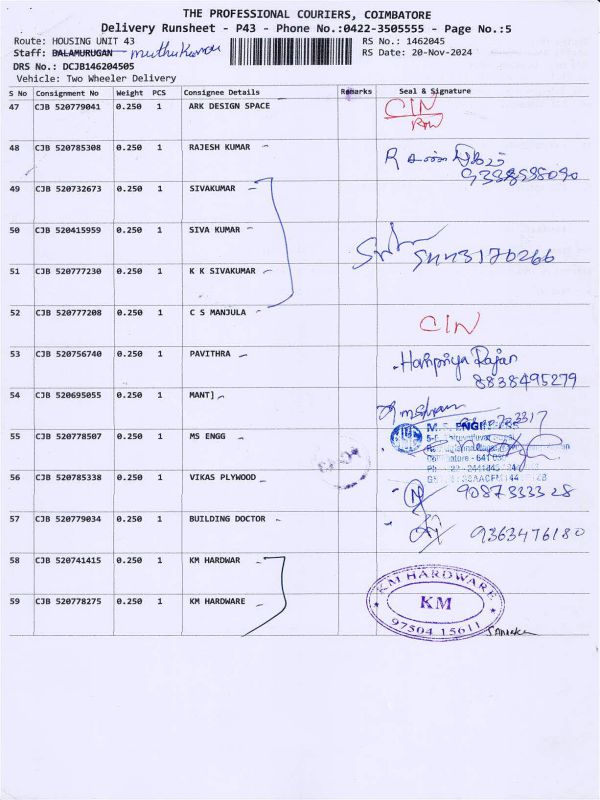 THE PROFESSIONAL COURIERS, COIMBATORE
Delivery Runsheet - P43 - Phone No.:0422-3505555 - Page No.:5
Route: HOUSING UNIT 43
RS No.: 1462045
Staff: BALAMURUGAN muthukumar
RS Date: 20-Nov-2024
DRS No.: DCJB146204505
Vehicle: Two Wheeler Delivery
S No Consignment No Weight PCS Consignee Details Remarks Seal & Signature
47 CJB 520779041 0.250 1 ARK DESIGN SPACE CIN
48 CJB 520785308 0.250 1 RAJESH KUMAR
49 CJB 520732673 0.250 1 SIVAKUMAR
50 CJB 520415959 0.250 1 SIVA KUMAR
51 CJB 520777230 0.250 1 K K SIVAKUMAR
52 CJB 520777208 0.250 1 C S MANJULA CIN
53 CJB 520756740 0.250 1 PAVITHRA Rajan
8838495279
54 CJB 520695055 0.250 1 MANT]
55 CJB 520778507 0.250 1 MS ENGG
56 CJB 520785338 0.250 1 VIKAS PLYWOOD N 9087333328
57 CJB 520779034 0.250 1 BUILDING DOCTOR 9363476180
58 CJB 520741415 0.250 1 KM HARDWAR
59 CJB 520778275 0.250 1 KM HARDWARE
KM HARDWARE
KM
97504 15611